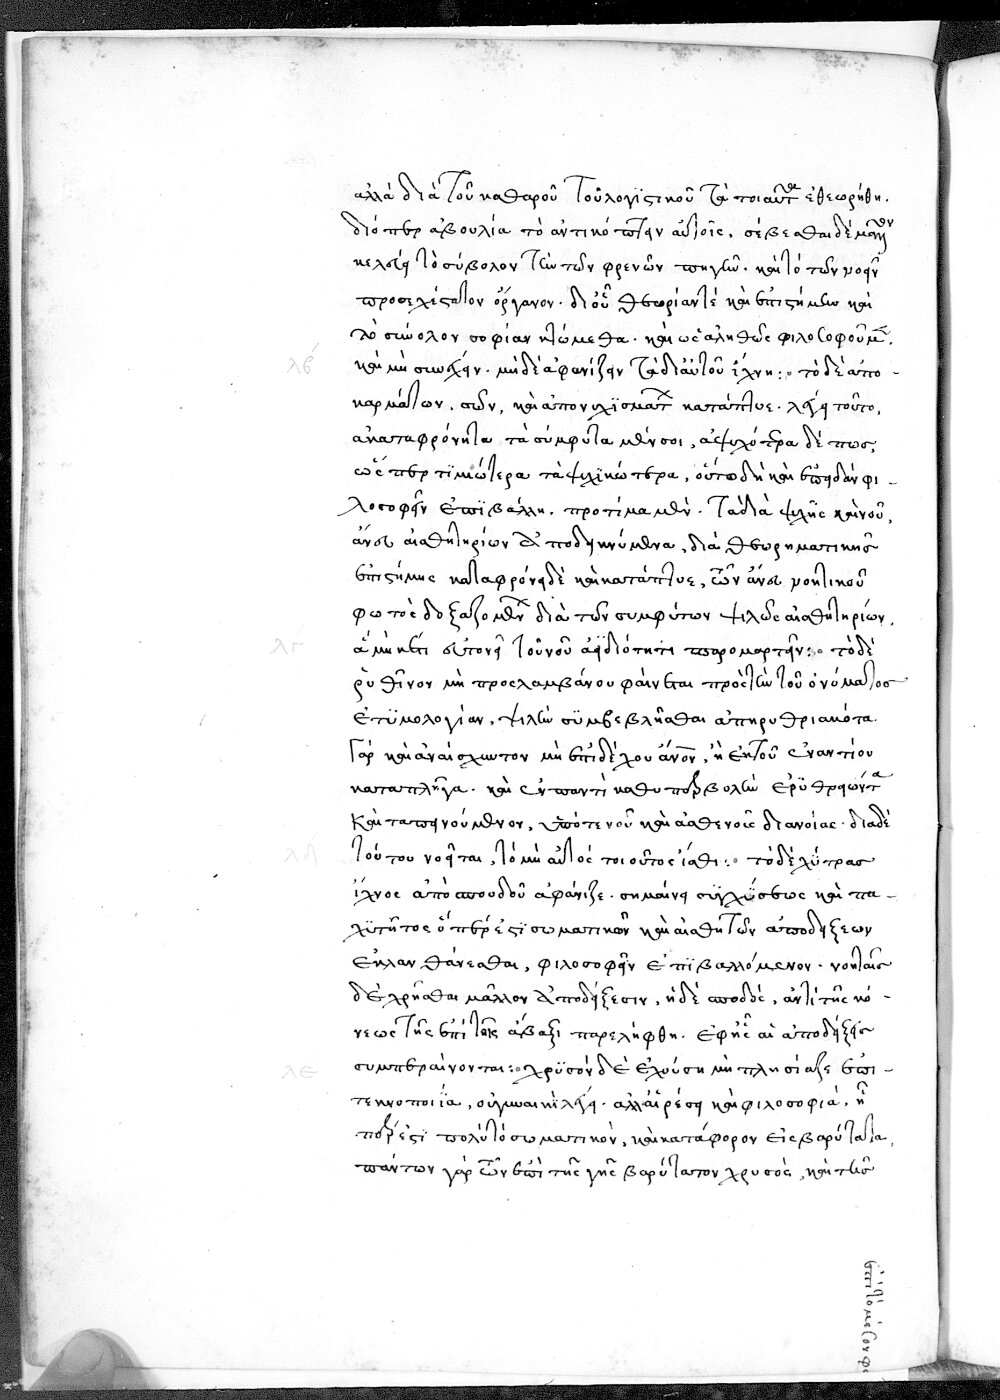 ἀλλὰ διὰ τοῦ καθαροῦ τοῦ λογιστικοῦ τὰ τοιαῦτα ἐθεωρήθη.
διόπερ ἀβουλία τὸ ἀντικόπτειν αὐτοῖς. σέβεσθαι δὲ μᾶλλον
κελεύει τὸ σύμβολον τὴν τῶν φρενῶν πηγήν. καὶ τὸ τῶν νοεῖν
προσεχέστατον ὄργανον. δι' οὗ θεωρίαν τὲ καὶ ἐπιστήμην καὶ
τὸ σύνολον σοφίαν κτώμεθα. καὶ ὡς ἀληθῶς φιλοσοφοῦμεν.
λβ καὶ μὴ συγχεῖν. μὴ δὲ ἀφανίζειν τὰ δι' αὐτοῦ ἴχνη: τὸ δὲ ἀπο-
καρμάτων, σῶν, καὶ ἀπονυχισμάτων κατάπτυε. λέγει τοῦτο,
ἀκαταφρόνητα τὰ σύμφυτα μέν σοι, ἀψυχότερα δέ πως,
ὥσπερ τιμιώτερα τὰ ψυχικώτερα, οὕτω δὴ καὶ ἐπειδὰν φι-
λοσοφεῖν ἐπιβάλλῃ. προτίμα μέν. τὰ διὰ ψυχῆς καὶ νοῦ,
ἄνευ αἰσθητηρίων ἀποδεικνύμενα, διὰ θεωρηματικῆς
ἐπιστήμης καταφρόνει δὲ καὶ κατάπτυε, τῶν ἄνευ νοητικοῦ
φωτὸς δοξαζομένων διὰ τῶν συμφύτων ψιλῶς αἰσθητηρίων,
λγ ἃ μὴ εὐτονεῖ τοῦ νοῦ ἀϊδιότητι παρομαρτεῖν: τὸ δὲ
ἐρυθῖνον μὴ προσλαμβάνου φαίνεται πρὸς τὴν τοῦ ὀνόματος
ἐτυμολογίαν, ψιλὴν συμβεβλῆσθαι ἀπηρυθριακότα
γὰρ καὶ ἀναίσχυντον μὴ ἐπιδέχου ἄνθρωπον, ἢ ἐκ τοῦ ἐναντίου
καταπλῆγα. καὶ ἐν παντὶ καθ' ὑπερβολὴν ἐρυθριῶντα
καὶ ταπεινούμενον, ὑπό τε νοῦ καὶ ἀσθενοῦς διανοίας. διὰ δὲ
λδ τούτου νοεῖται, τὸ μὴ αὐτὸς τοιοῦτος ἴσθι: τὸ δὲ χύτρας
ἴχνος ἀπὸ σποδοῦ ἀφάνιζε. σημαίνει συγχύσεως καὶ πα-
χύτητος ὅπερ ἐστὶ σωματικῶν καὶ αἰσθητῶν ἀποδείξεων
ἐπιλανθάνεσθαι, φιλοσοφεῖν ἐπιβαλλόμενον. νοηταῖς
δὲ χρῆσθαι μᾶλλον ἀποδείξεσιν, ἡ δὲ σποδὸς, ἀντὶ τῆς κό-
νεως τῆς ἐπὶ τοῖς ἄβαξι παρελήφθη. ἐφ' ἧς αἱ ἀποδείξεις
λε συμπεραίνονται: χρυσὸν δὲ ἐχούσῃ μὴ πλησίαζε ἐπὶ
τεκνοποιΐα, οὐ γυναικὶ λέγει. ἀλλ' αἱρέσει καὶ φιλοσοφίᾳ, ᾗ
περίεστι πολὺ τὸ σωματικὸν, καὶ κατάφορον εἰς βαρύτητα,
πάντων γὰρ τῶν ἐπὶ τῆς γῆς βαρύτατον χρυσὸς, καὶ τῆς